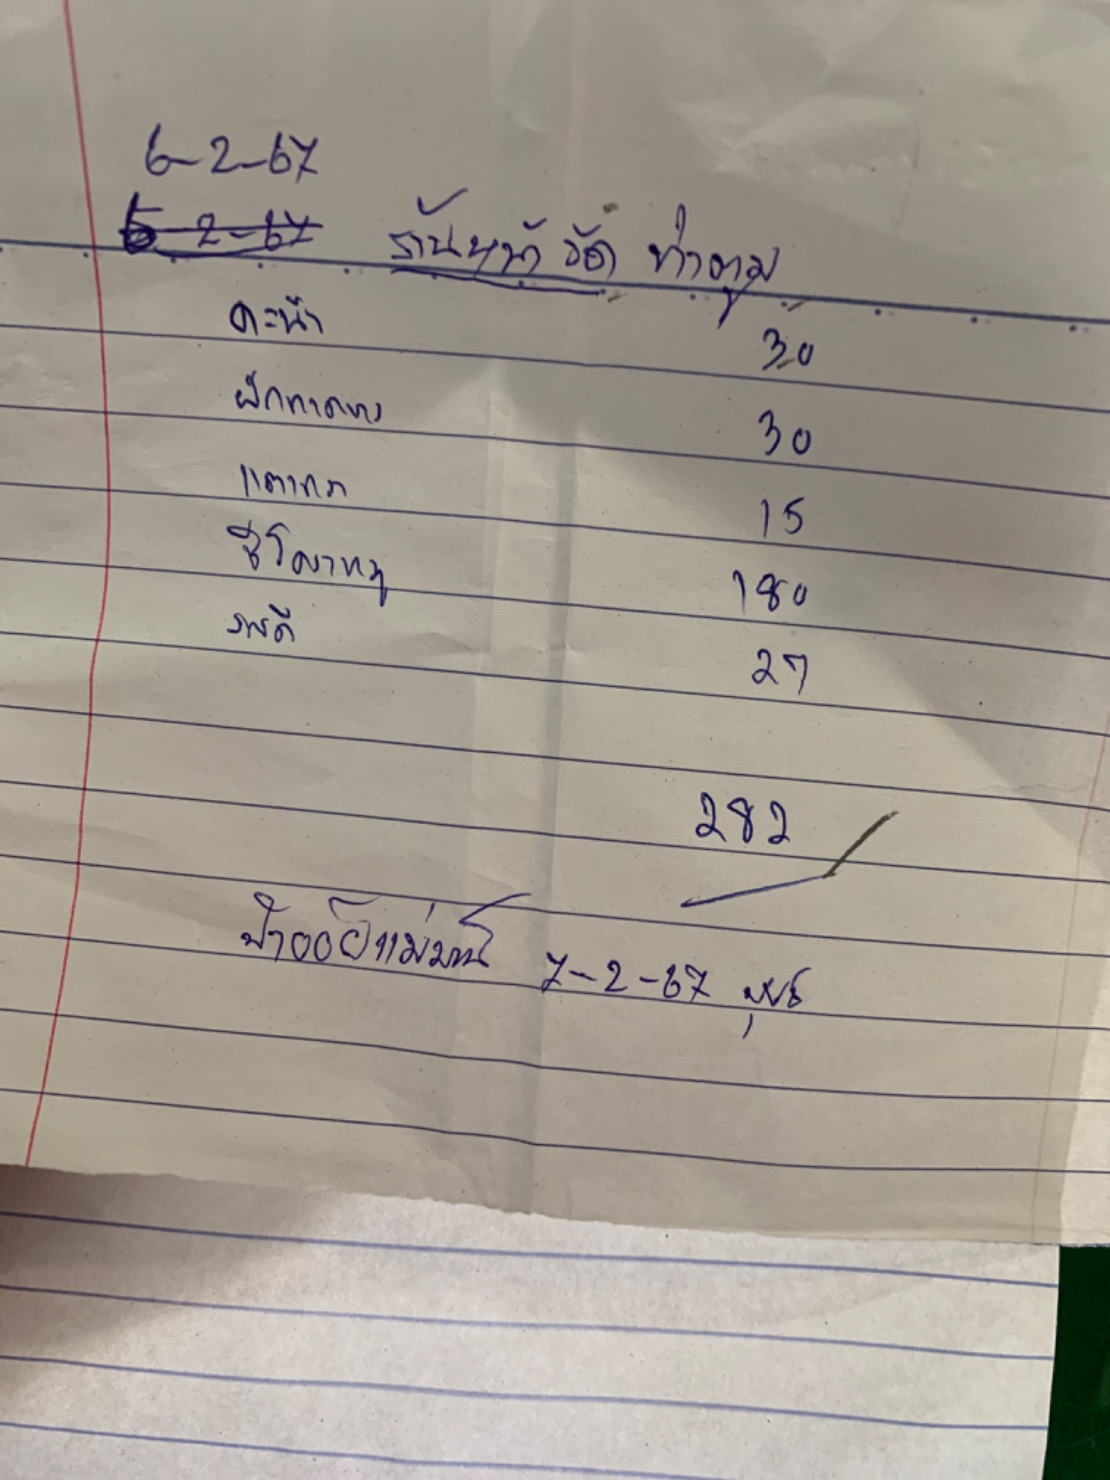 6-2-67
6-2-67 ร้านหน้าวัด ท่าตูม
คะน้า 30
ผักกาดขาว 30
แตงกวา 15
ซี่โครงหมู 180
รสดี 27
282
7-2-67 พุธ